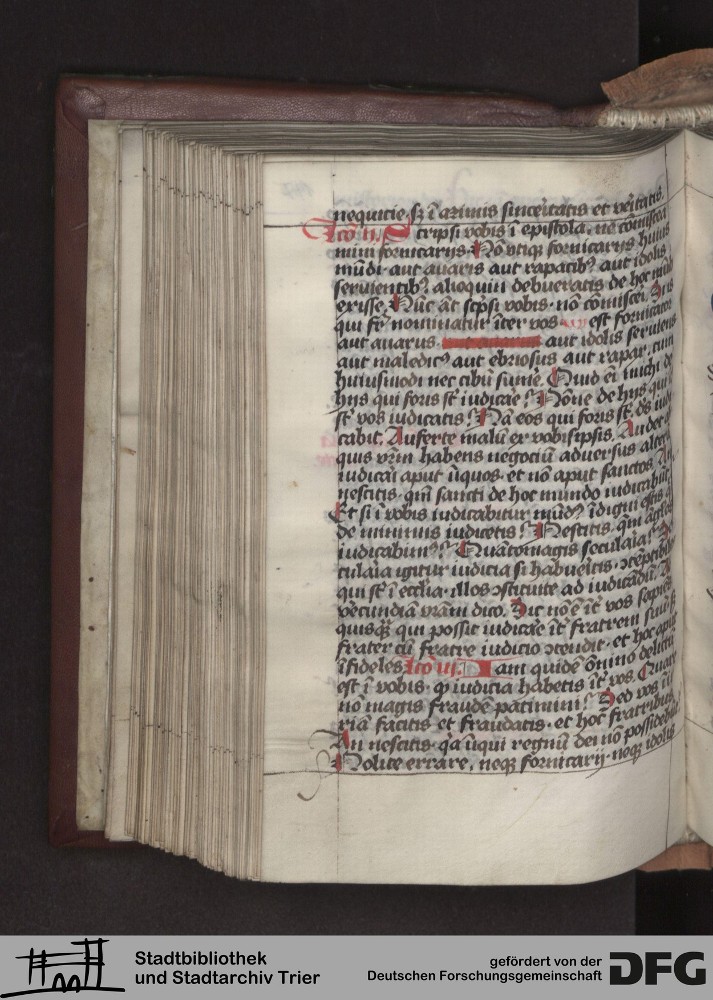 nequitie. sʒ ī azimis sinceritatis et veritatis.
Lc̄o ii. Scripsi vobis ī epistola. ne cōmiscea
mini fornicarijs. Nō vtiqꝫ fornicarijs huius
mūdi. aut auaris aut rapacibꝰ aut idolis
seruientibꝰ. alioquin debueratis de hoc mūdo
exisse. Nūc aūt scp̄si vobis. nō cōmisceri. Si is
qui fr̄ nominatur īter vos est fornicator
aut auarus. aut auarus aut idolis seruiens
aut maledicꝰ aut ebriosus aut rapax. cum
huiusmodi nec cibū sume. Quid ei michi de
hijs qui foris st̄ iudicare? Nōne de hijs qui ī
st̄ vos iudicatis? Nā eos qui foris st̄. ds̄ iudi
cabit. Auferte malū ex vobisipsis. Audet ali
quis vr̄m habens negociū aduersus alterū
iudicari aput īiquos. et nō aput sanctos. An
nescitis. qm̄ sancti de hoc mundo iudicabūt.
Et si ī vobis iudicabitur mūdꝰ. īdigni estis qͥ
de minimis iudicetis? Nescitis. qm̄ āgelos
iudicabimꝰ? Quātomagis secularia? Se
cularia igitur iudicia si habueritis. ꝯtēptibiles
qui st̄ ī ecclīa. illos ꝯstituite ad iudicādū. Ad
verecundiā vr̄am dico. Sic nō ē īt̄ vos sapiēs
quisqꝫ qui possit iudicare īt̄ fratrem suū. sʒ
frater cū fratre iudicio ꝯtendit. et hoc aput
īfideles. Lc̄o iii. Iam quidē ōnino delictū
est ī vobis. ꝙ iudicia habetis īt̄ vos. Quare
nō magis fraudē patimini? Sed vos īiu
riā facitis et fraudatis. et hoc fratribus.
An nescitis. qꝛ īiqui regnū dei nō possidebūt.
Nolite errare. neqꝫ fornicarij. neqꝫ idolis
Stadtbibliothek
und Stadtarchiv Trier
gefördert von der
Deutschen Forschungsgemeinschaft
DFG